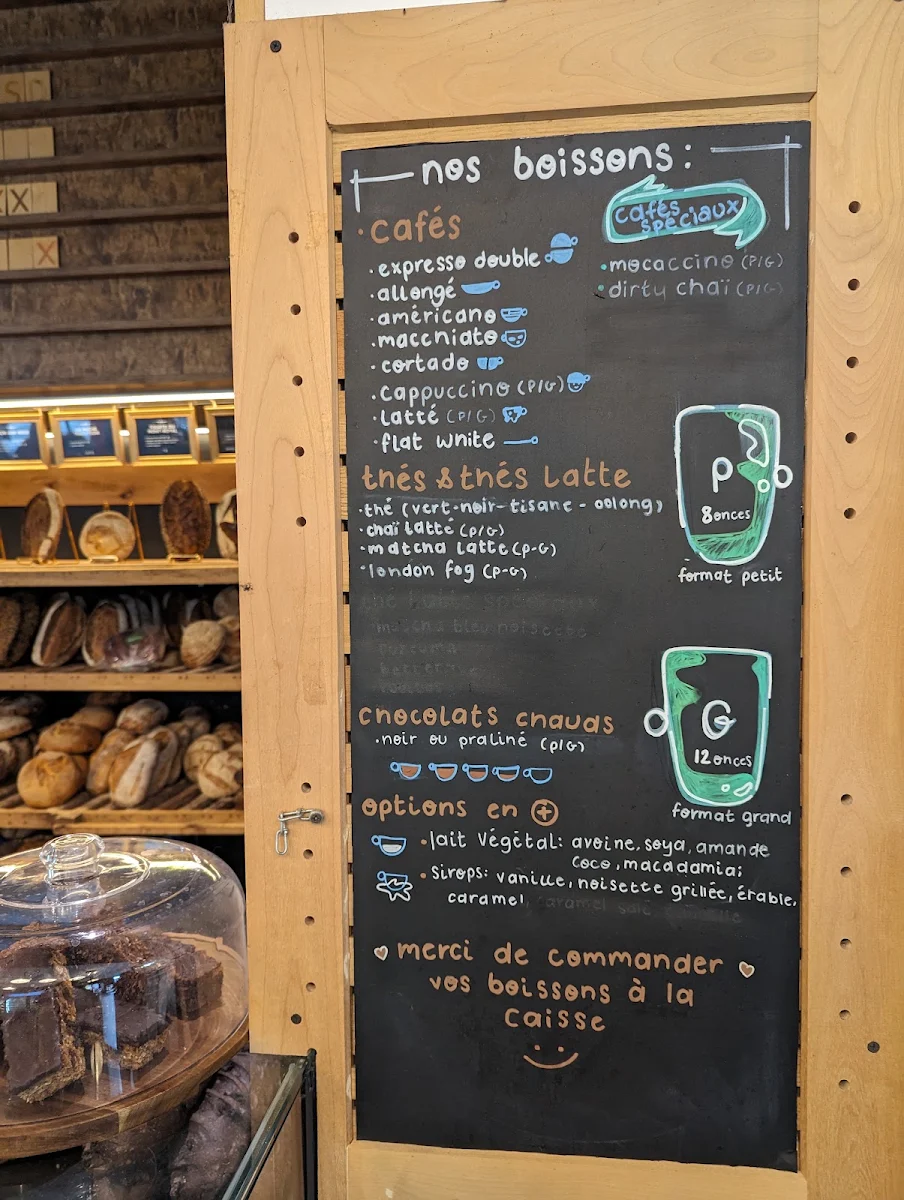 nos boissons:
• cafés
• expresso double
• allongé
• américano
• macchiato
• cortado
• cappuccino (P/G)
• latté (P/G)
• flat white
cafés
spéciaux
• mocaccino (P/G)
• dirty chaï (P/G)
thés & thés Latte
• thé (vert-noir-tisane - oolong)
• chaï latté (P/G)
• matcha latte (P-G)
• london fog (P-G)
P
8 onces
format petit
chocolats chauds
• noir ou praliné (P/G)
G
12 onces
format grand
options en +
• lait végétal: avoine, soya, amande
coco, macadamia;
• Sirops: vanille, noisette grillée, érable,
caramel
merci de commander
vos boissons à la
caisse